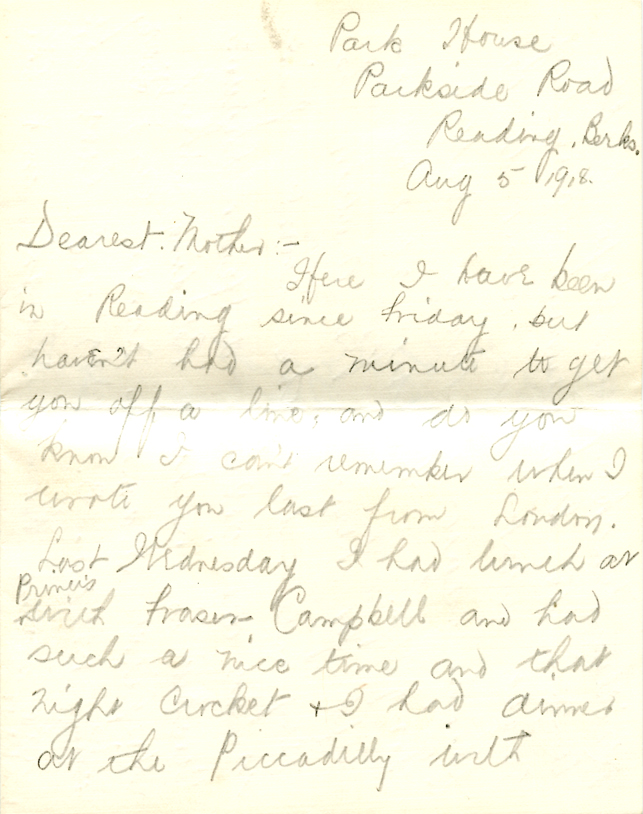 Park House
Parkside Road
Reading, Berks.
Aug 5 1918.
Dearest Mother:-
Here I have been
in Reading since Friday, but
haven't had a minute to get
you off a line, and do you
know I can't remember when I
wrote you last from London.
Last Wednesday I had lunch at
Princes
with Fraser Campbell and had
such a nice time and that
night Crocket + I had dinner
at the Piccadilly with